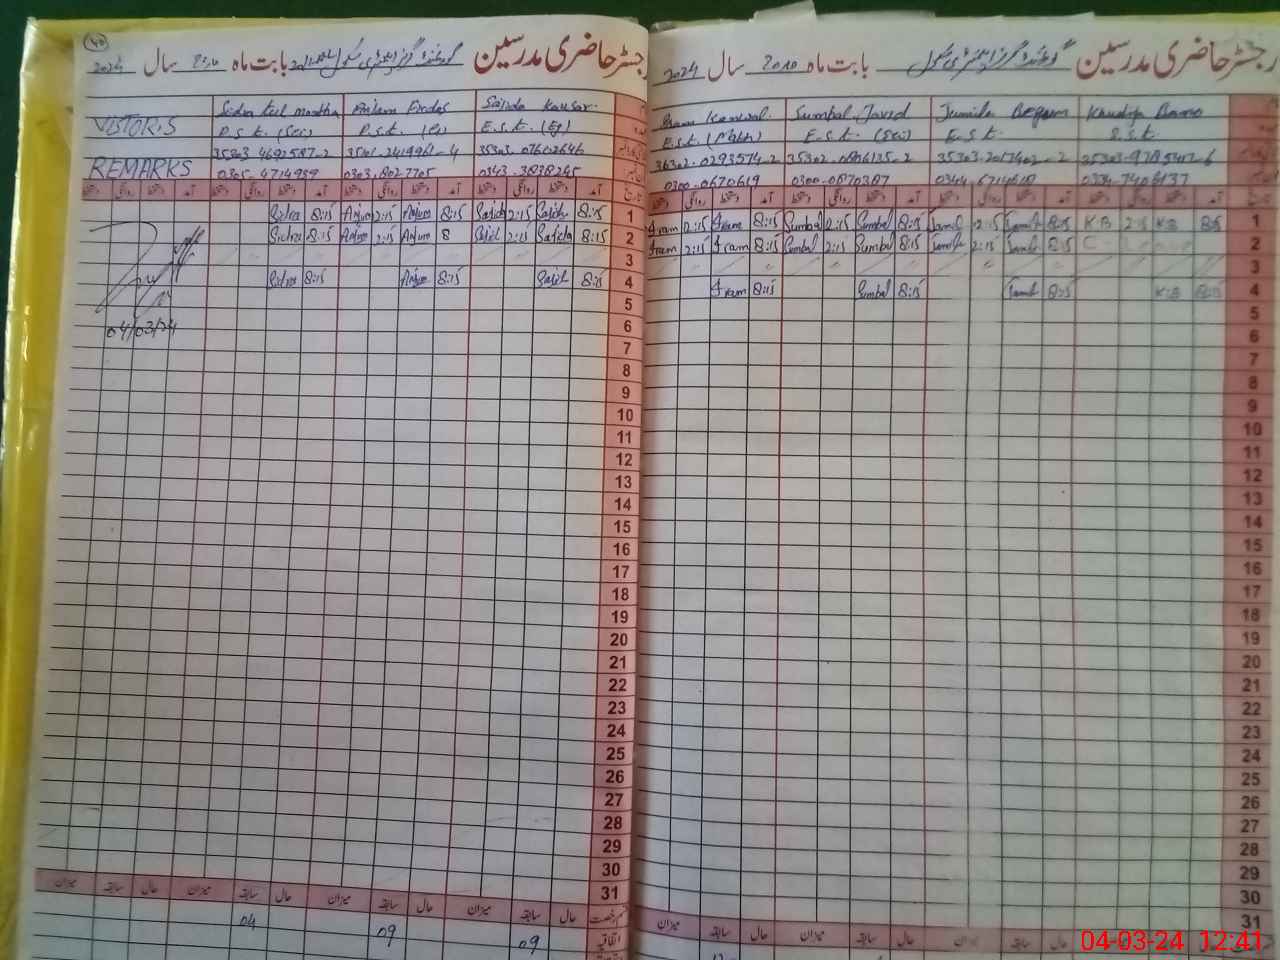 رجسٹر حاضری مدرسین گورنمنٹ گرلز ایلیمنٹری سکول بابت ماہ مارچ سال 2024
Iram Kanwal Sumbal Javed Jamila Begum Khadija Bano
E.s.t (Math) E.S.t. (Sci) E.S.t. S.S.t.
36302-0293574-2
0300-0670619 0300-0870387
آمد دستخط روانگی دستخط
1 Iram 2:15 Iram 8:15 Sumbal 2:15 Sumbal 8:15 Jamil 2:15 Jamil 8:15 K.B 2:15 K.B 8:15
2 Iram 2:15 Iram 8:15 Sumbal 2:15 Sumbal 8:15 Jamil 2:15 Jamil 8:15 C. Leave
3
4 Iram 8:15 Sumbal 8:15 Jamil 8:15 K.B 8:15
5
6
7
8
9
10
11
12
13
14
15
16
17
18
19
20
21
22
23
24
25
26
27
28
29
30
31
میزان سابقہ حال میزان سابقہ حال
40
رجسٹر حاضری مدرسین گورنمنٹ گرلز ایلیمنٹری سکول بابت ماہ مارچ سال 2024
VISTORS Anjum Firdos Sajida Kausar
P.S.t. (Sci) P.S.t. E.S.t.
REMARKS 35303-4692587-2 35303-07602646
0305-4714939 0303-8027705 0343-3838245
آمد دستخط روانگی دستخط تاریخ
Sidra 8:15 Anjum 2:15 Anjum 8:15 Sajida 2:15 Sajida 8:15 1
Sidra 8:15 Anjum 2:15 Anjum 8 Sajid 2:15 Sajida 8:15 2
3
Sidra 8:15 Anjum 8:15 Sajid 8:15 4
5
04/03/24 6
7
8
9
10
11
12
13
14
15
16
17
18
19
20
21
22
23
24
25
26
27
28
29
30
31
میزان سابقہ حال میزان سابقہ حال میزان سابقہ حال میزان سابقہ حال
04 09 09 اتفاقیہ
04-03-24 12:41